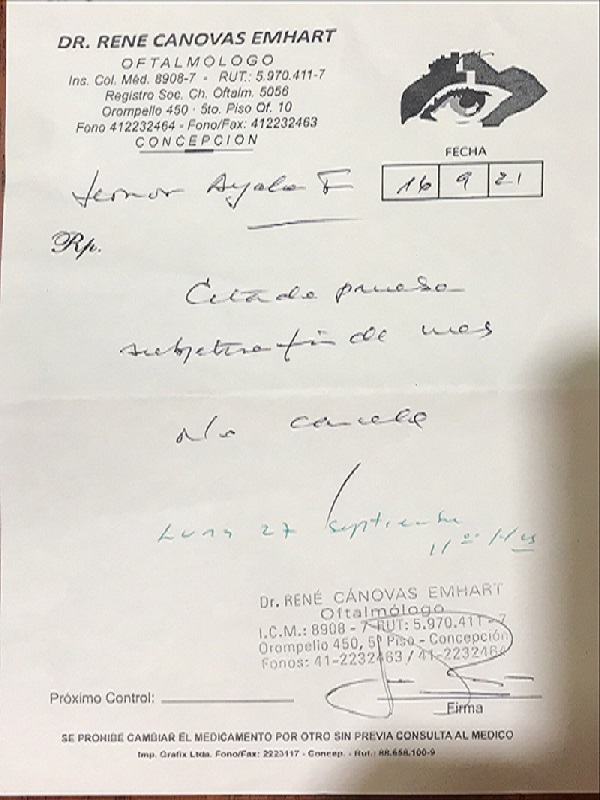 DR. RENE CANOVAS EMHART
OFTALMÓLOGO
Ins. Col. Méd. 8908-7 - RUT.: 5.970.411-7
Registro Soc. Ch. Oftalm. 5056
Orompello 450 - 5to. Piso Of. 10
Fono 412232464 - Fono/Fax: 412232463
CONCEPCION
FECHA
Ayala F
16 9 21
Rp.
Citado prueba
subjetiva fin de mes
No cancela
Lunes 27 septiembre
11 00 Hrs
Dr. RENÉ CÁNOVAS EMHART
Oftalmólogo
I.C.M.: 8908 - 7 RUT: 5.970.411 - 7
Orompello 450, 5º Piso - Concepción
Fonos: 41-2232463 / 41-2232464
Próximo Control:
Firma
SE PROHIBE CAMBIAR EL MEDICAMENTO POR OTRO SIN PREVIA CONSULTA AL MEDICO
Imp. Grafix Ltda. Fono/Fax: 2223117 - Concep. - Rut.: 88.658.100-9